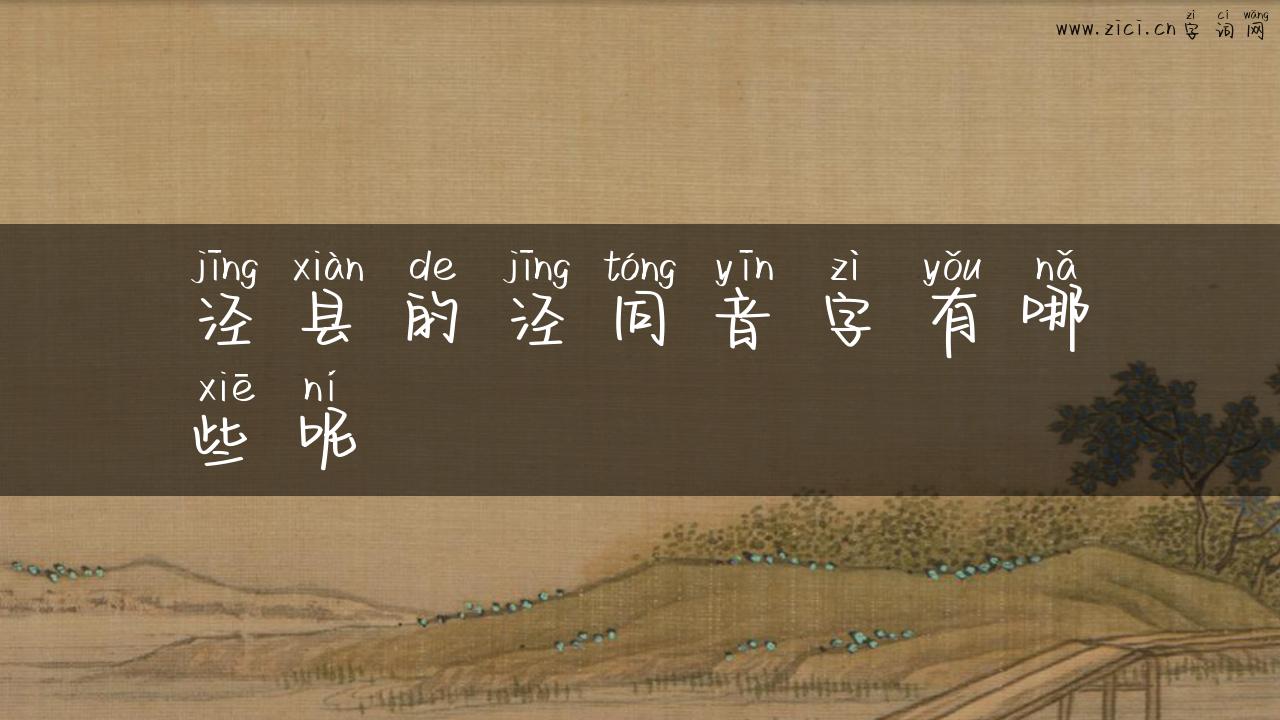 zì cí wǎng
www.zici.cn字词网
jīng xiàn de jīng tóng yīn zì yǒu nǎ
泾县的泾同音字有哪
xiē ní
些呢